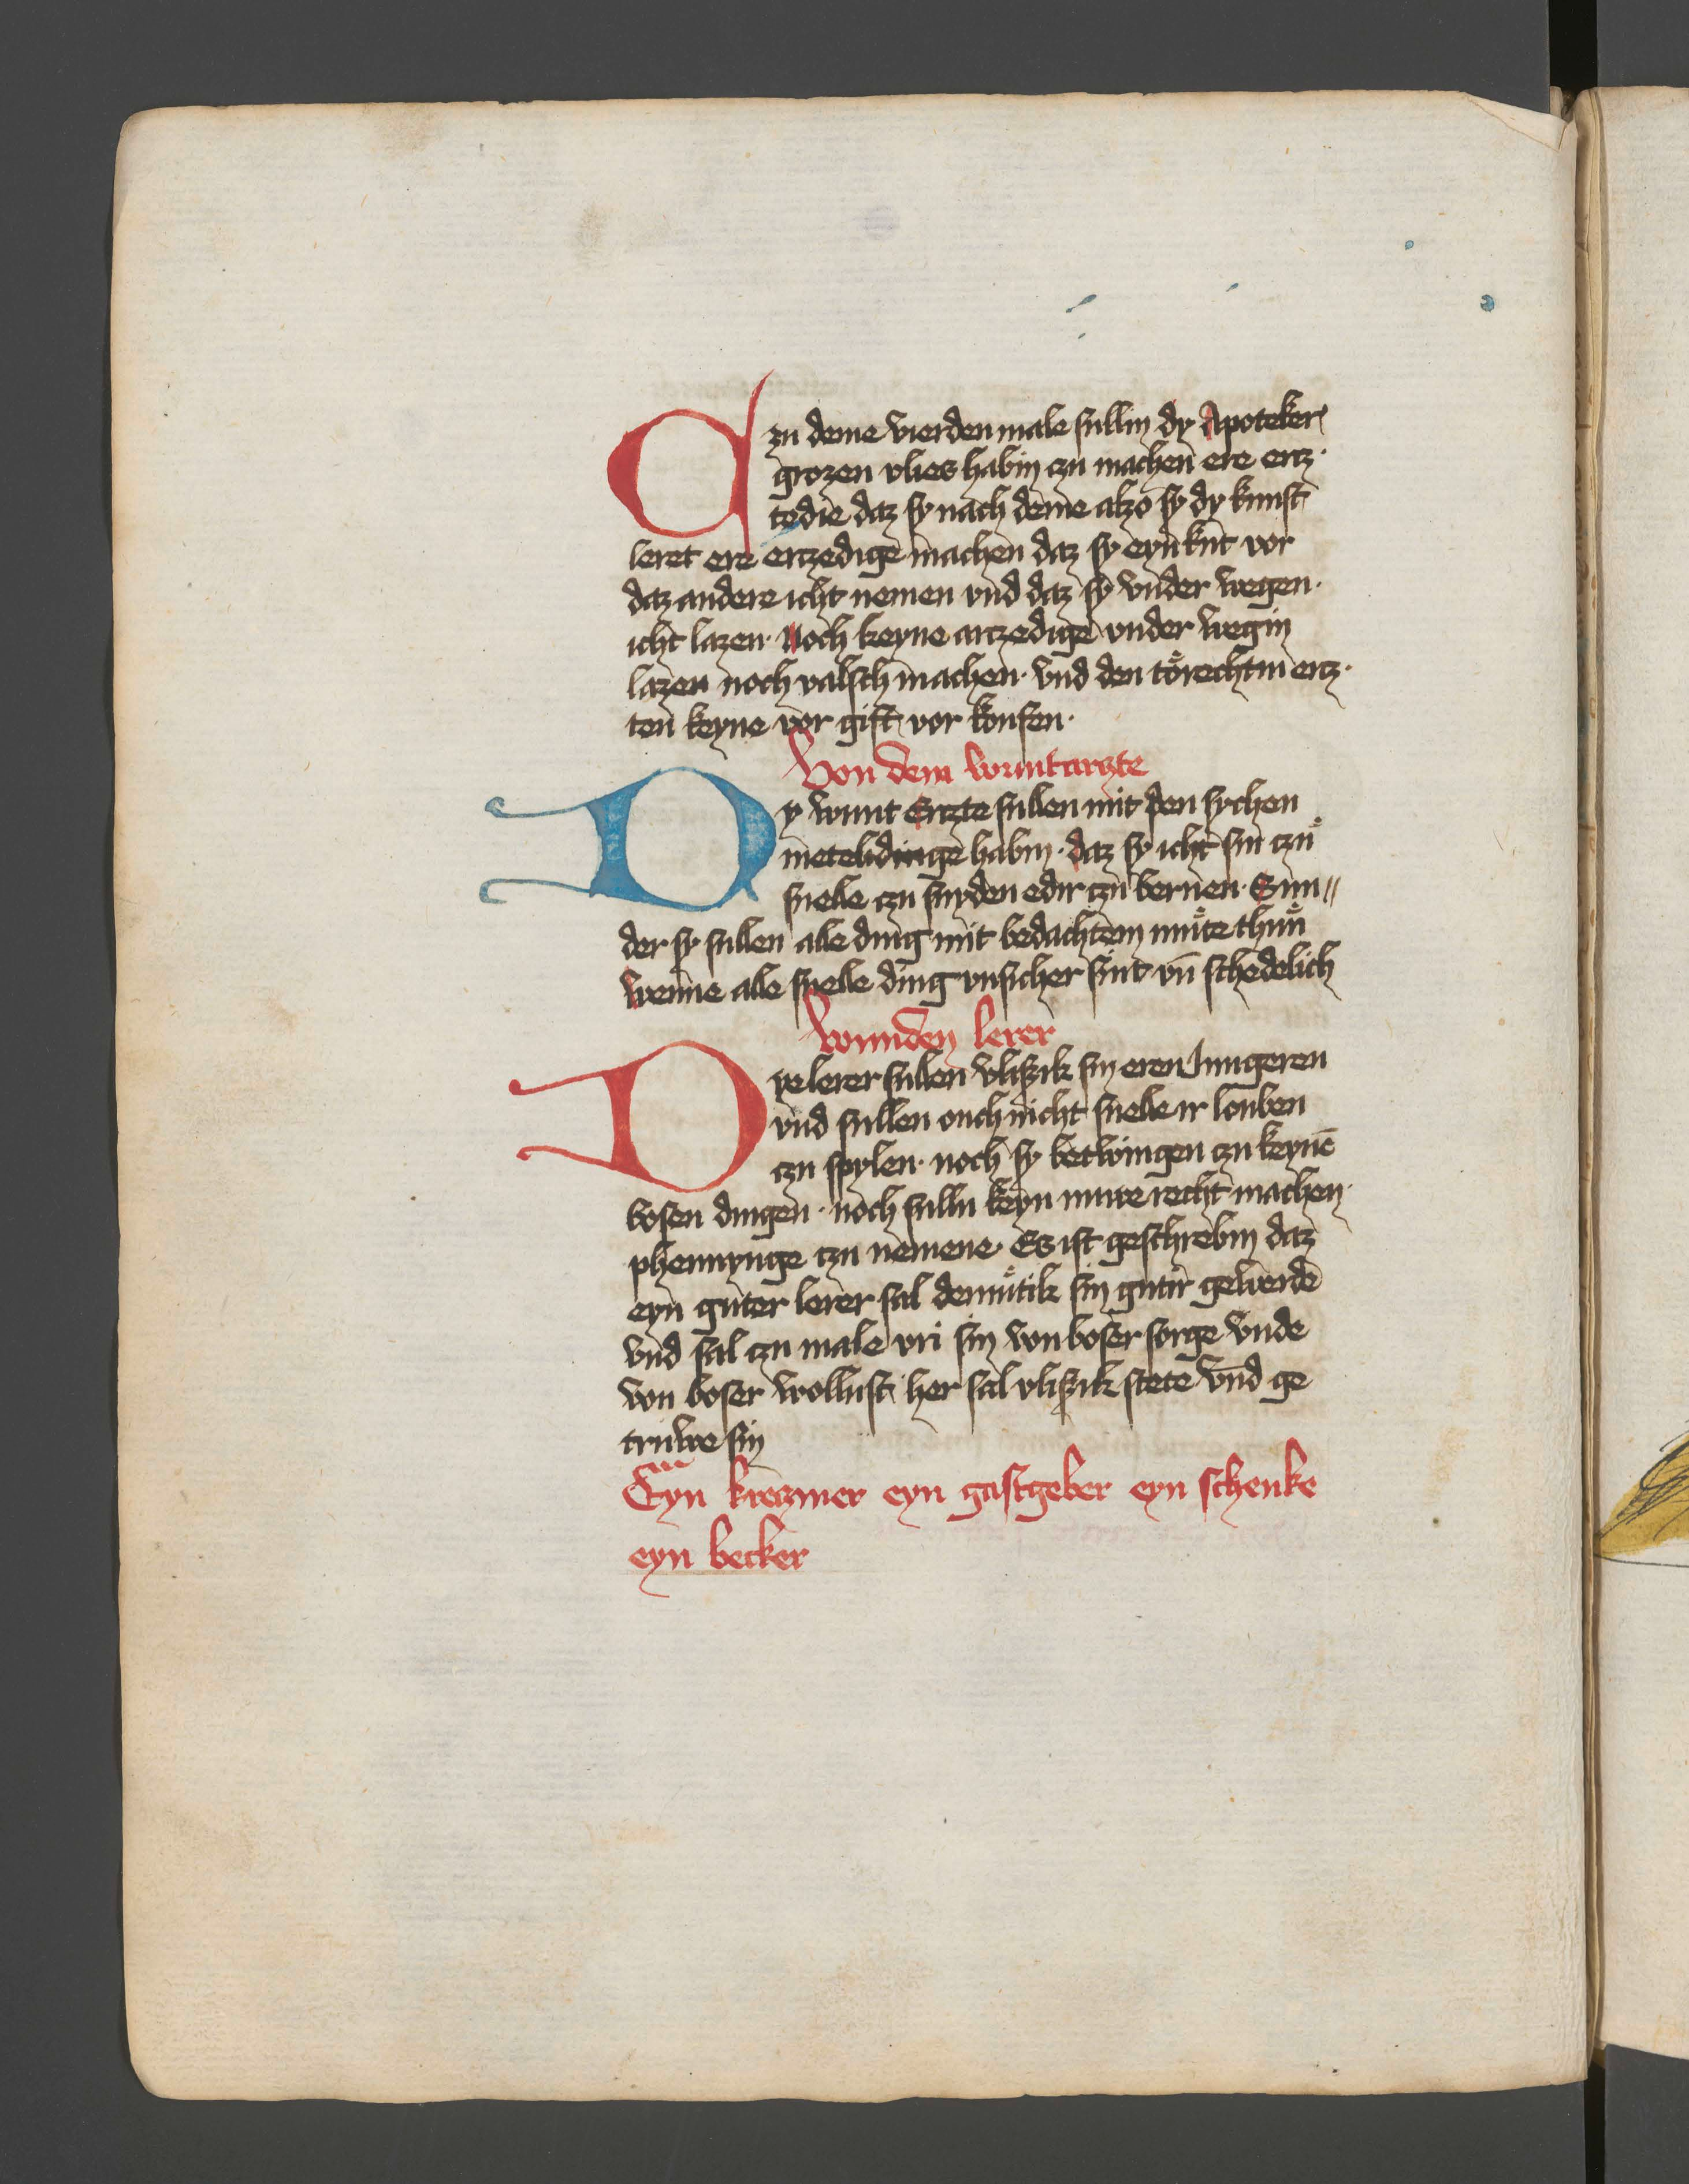 Czu deme vierden male sullin dy Apoteker
grozen vlies habin czu machen ere ercz·
tedie daz sy nach deme alzo sy dy kunst
leret ere erczedige machen daz sy eyn krut vor
daz andere icht nemen vnd daz sy vnder wegen·
icht lazen· Noch keyne arczedige vnder wegin
lazen noch valsch machen· vnd den törechtin ercz·
ten keyne vor gift vor koufen·
Von dem wuntarczte
Dy wunt Erczte sullen mit den sychen
metelidinge habin· daz sy icht sin czů
snelle czu snyden edir czu bernen· Sun〃
der sy sullen alle ding mit bedachtem můte thůn
wenne alle snelle ding vnsicher sint vn̄ schedelich
Von den lerer
Dye lerer sullen vliszik sin eren Jungeren
vnd sullen ouch nicht snelle ir louben
czu spylen· noch sy betwingen czu keynē
bosen dingen· noch sulln keyn recht machen·
phennynge czu nemene· Es ist geschrebin daz
eyn guter lerer sal demůtik sin gutir geberde
vnd sal czu male vri sin von boser sorge vnde
von boser wollust her sal vliszik stete vnd ge
truwe sin
Eyn kreczmer eyn gastgeber eyn schenke
eyn becker